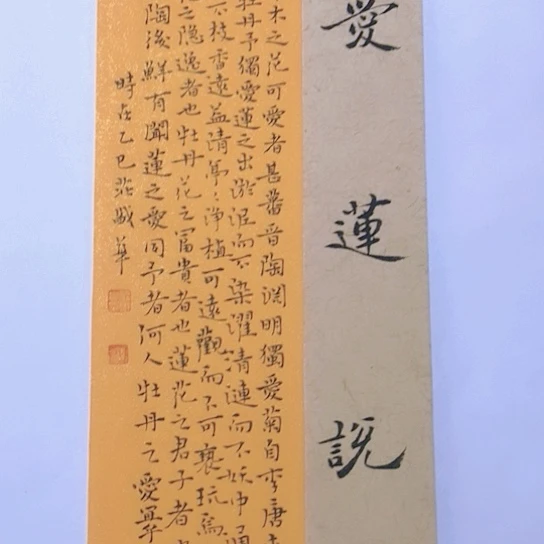 愛蓮説
木之花可愛者甚蕃晉陶淵明獨愛菊自李唐
牡丹予獨愛蓮之出淤泥而不染濯清漣而不妖中通
不枝香遠益清亭〻淨植可遠觀而不可褻玩焉
之隐逸者也牡丹花之富貴者也蓮花之君子者也
陶後鮮有聞蓮之愛同予者何人牡丹之愛宜
時在乙巳